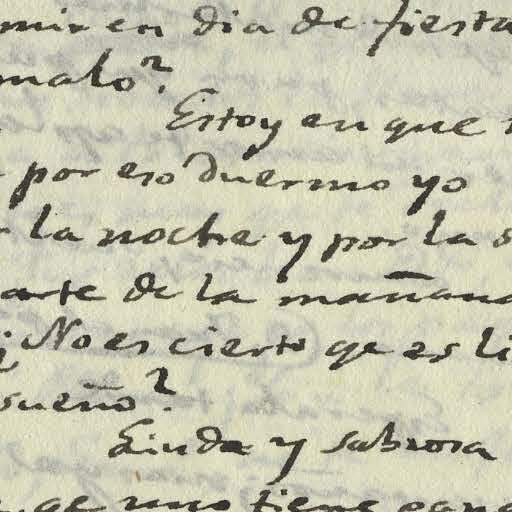 mir en dia de fiesta
malo?
Estoy en que
por eso duermo yo
la noche y por la
arte de la mañana
¿No es cierto qe es li
sueño?
Linda y sabrosa
qe uno tiene